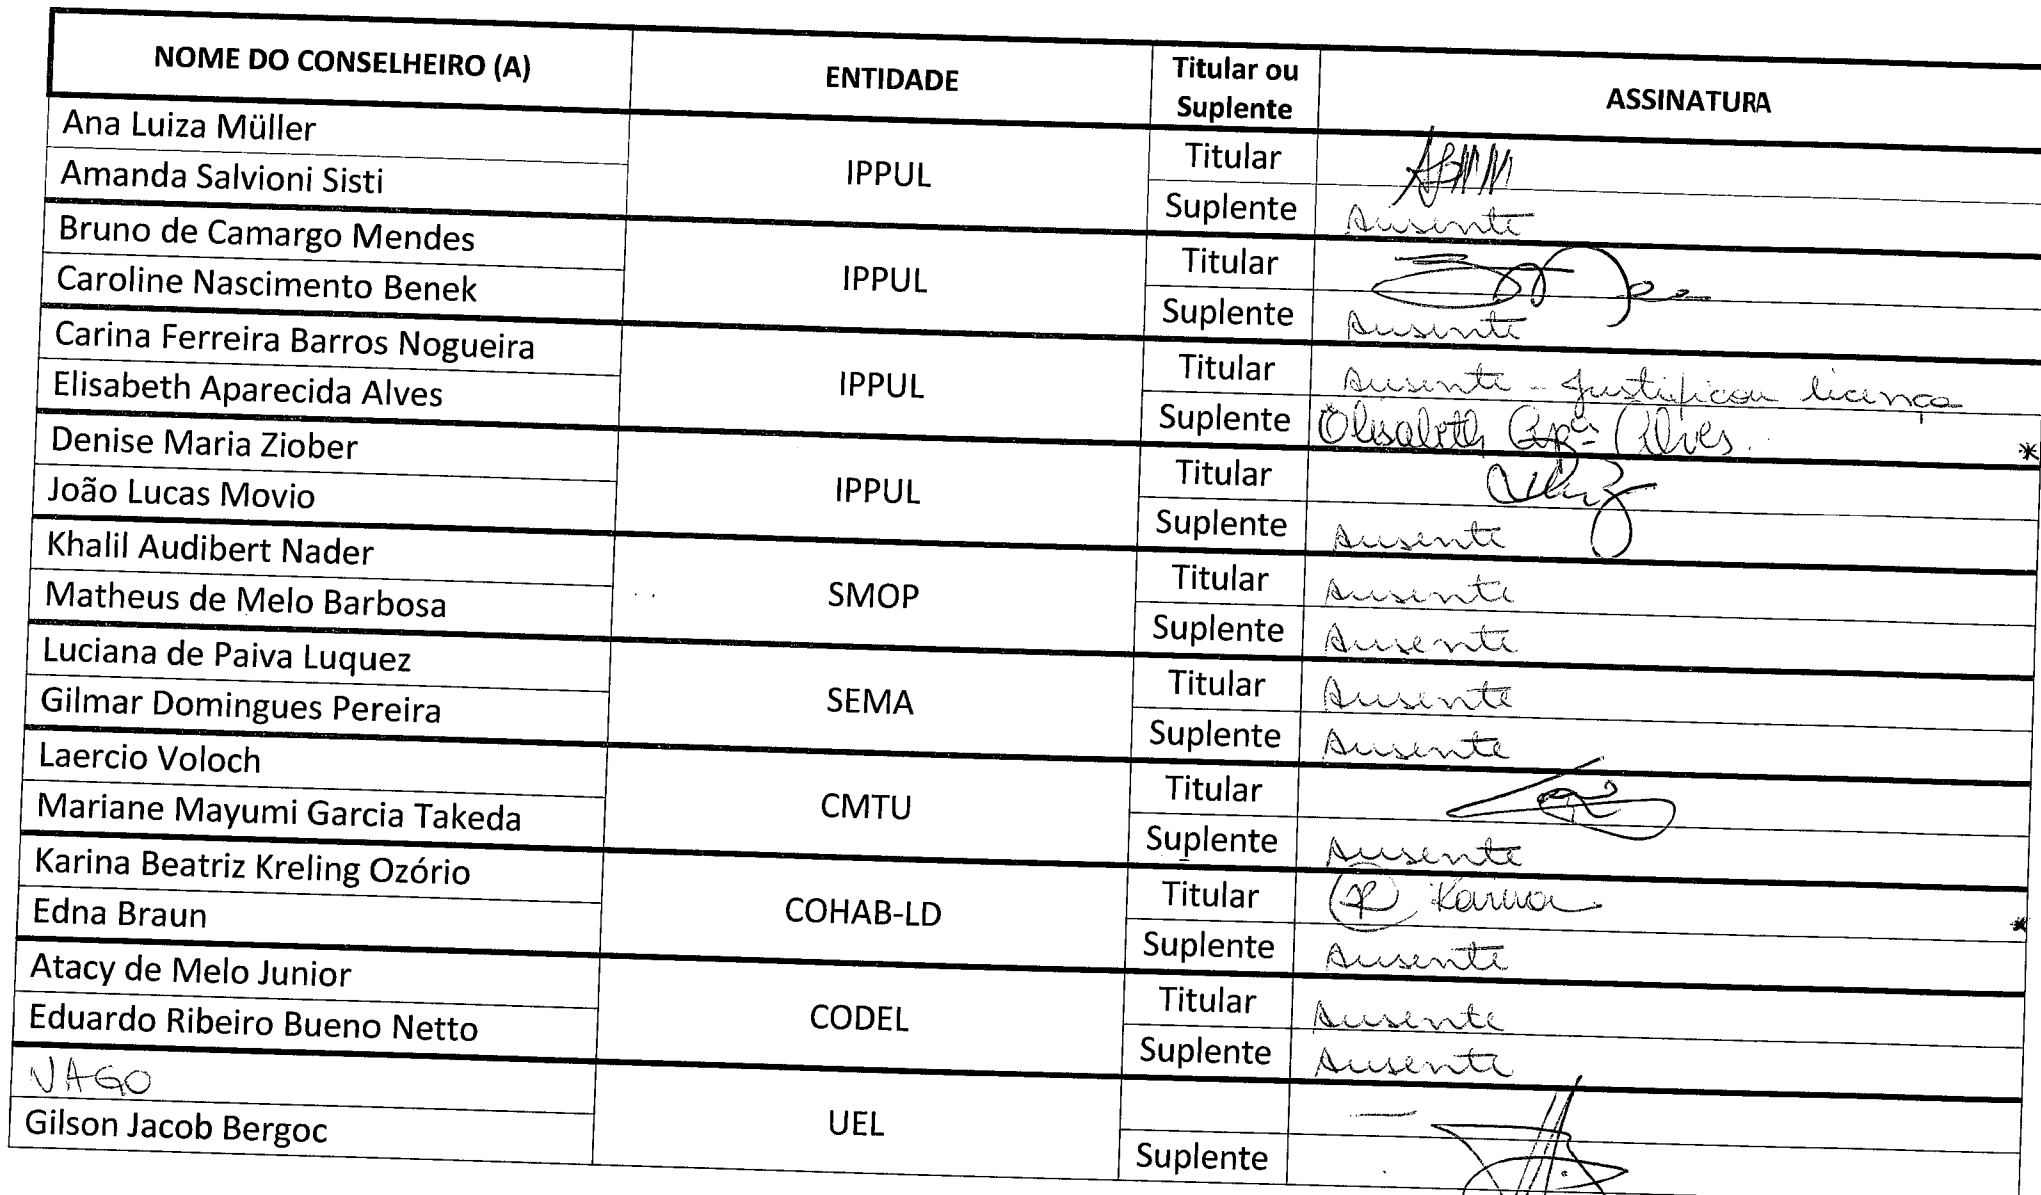 NOME DO CONSELHEIRO (A) ENTIDADE Titular ou Suplente ASSINATURA
Ana Luiza Müller IPPUL Titular
Amanda Salvioni Sisti Suplente Ausente
Bruno de Camargo Mendes IPPUL Titular
Caroline Nascimento Benek Suplente Ausente
Carina Ferreira Barros Nogueira IPPUL Titular Ausente - Justificou licença
Elisabeth Aparecida Alves Suplente Elisabeth Apª Alves *
Denise Maria Ziober IPPUL Titular
João Lucas Movio Suplente Ausente
Khalil Audibert Nader SMOP Titular Ausente
Matheus de Melo Barbosa Suplente Ausente
Luciana de Paiva Luquez SEMA Titular Ausente
Gilmar Domingues Pereira Suplente Ausente
Laercio Voloch CMTU Titular
Mariane Mayumi Garcia Takeda Suplente Ausente
Karina Beatriz Kreling Ozório COHAB-LD Titular Karina *
Edna Braun Suplente Ausente
Atacy de Melo Junior CODEL Titular Ausente
Eduardo Ribeiro Bueno Netto Suplente Ausente
VAGO UEL —
Gilson Jacob Bergoc Suplente